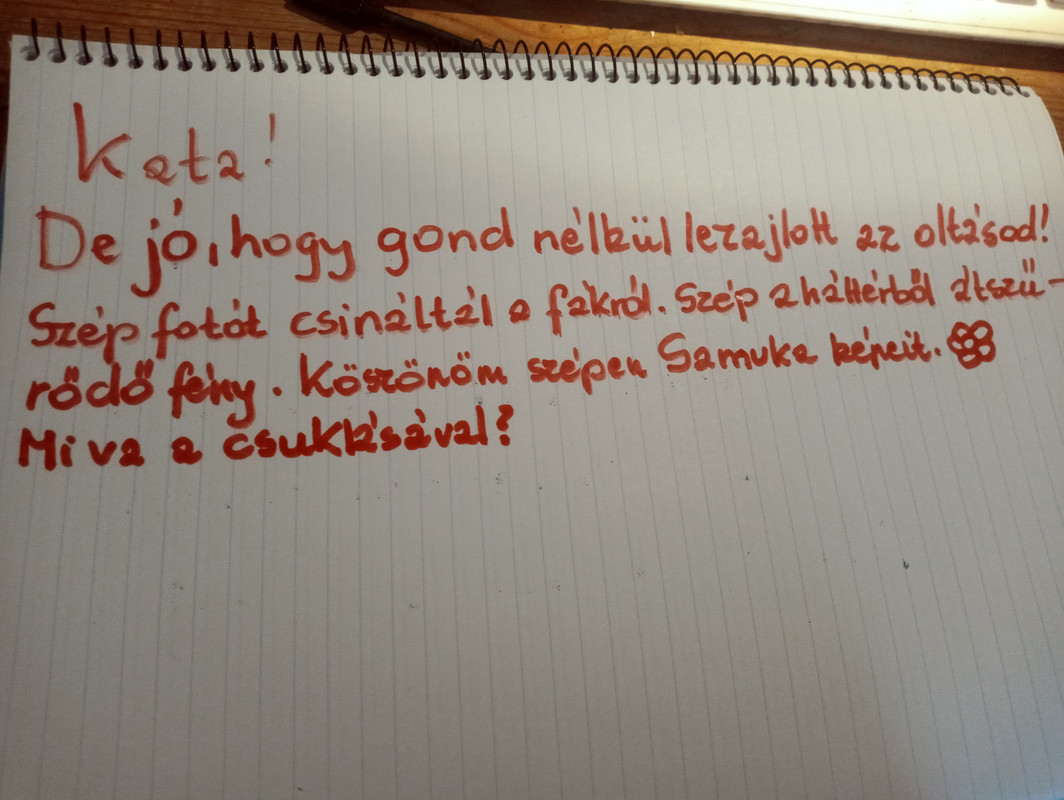 Kata!
De jó, hogy gond nélkül lezajlott az oltásod!
Szép fotót csináltál a fákról. Szép a háttérből átszű-
rődő fény. Köszönöm szépen Samuka képeit.
Mi va a csuklásával?